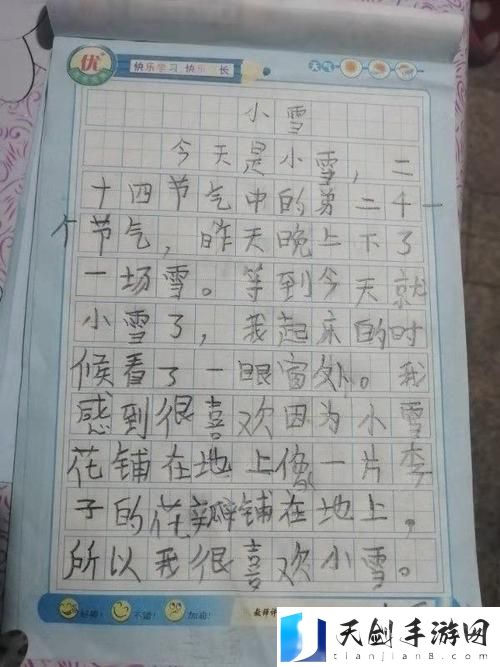 优
快乐学习 快乐 长
天气
小雪
今天是小雪，二
十四节气中的第二十一
个节气，昨天晚上下了
一场雪。等到今天就
小雪了，我起床的时
候看了一眼窗外。我
感到很喜欢因为小雪
花铺在地上像一片李
子的花瓣铺在地上，
所以我很喜欢小雪。
好棒！ 不错！ 加油！ 教师评
天剑手游网
www.tjsyw.com